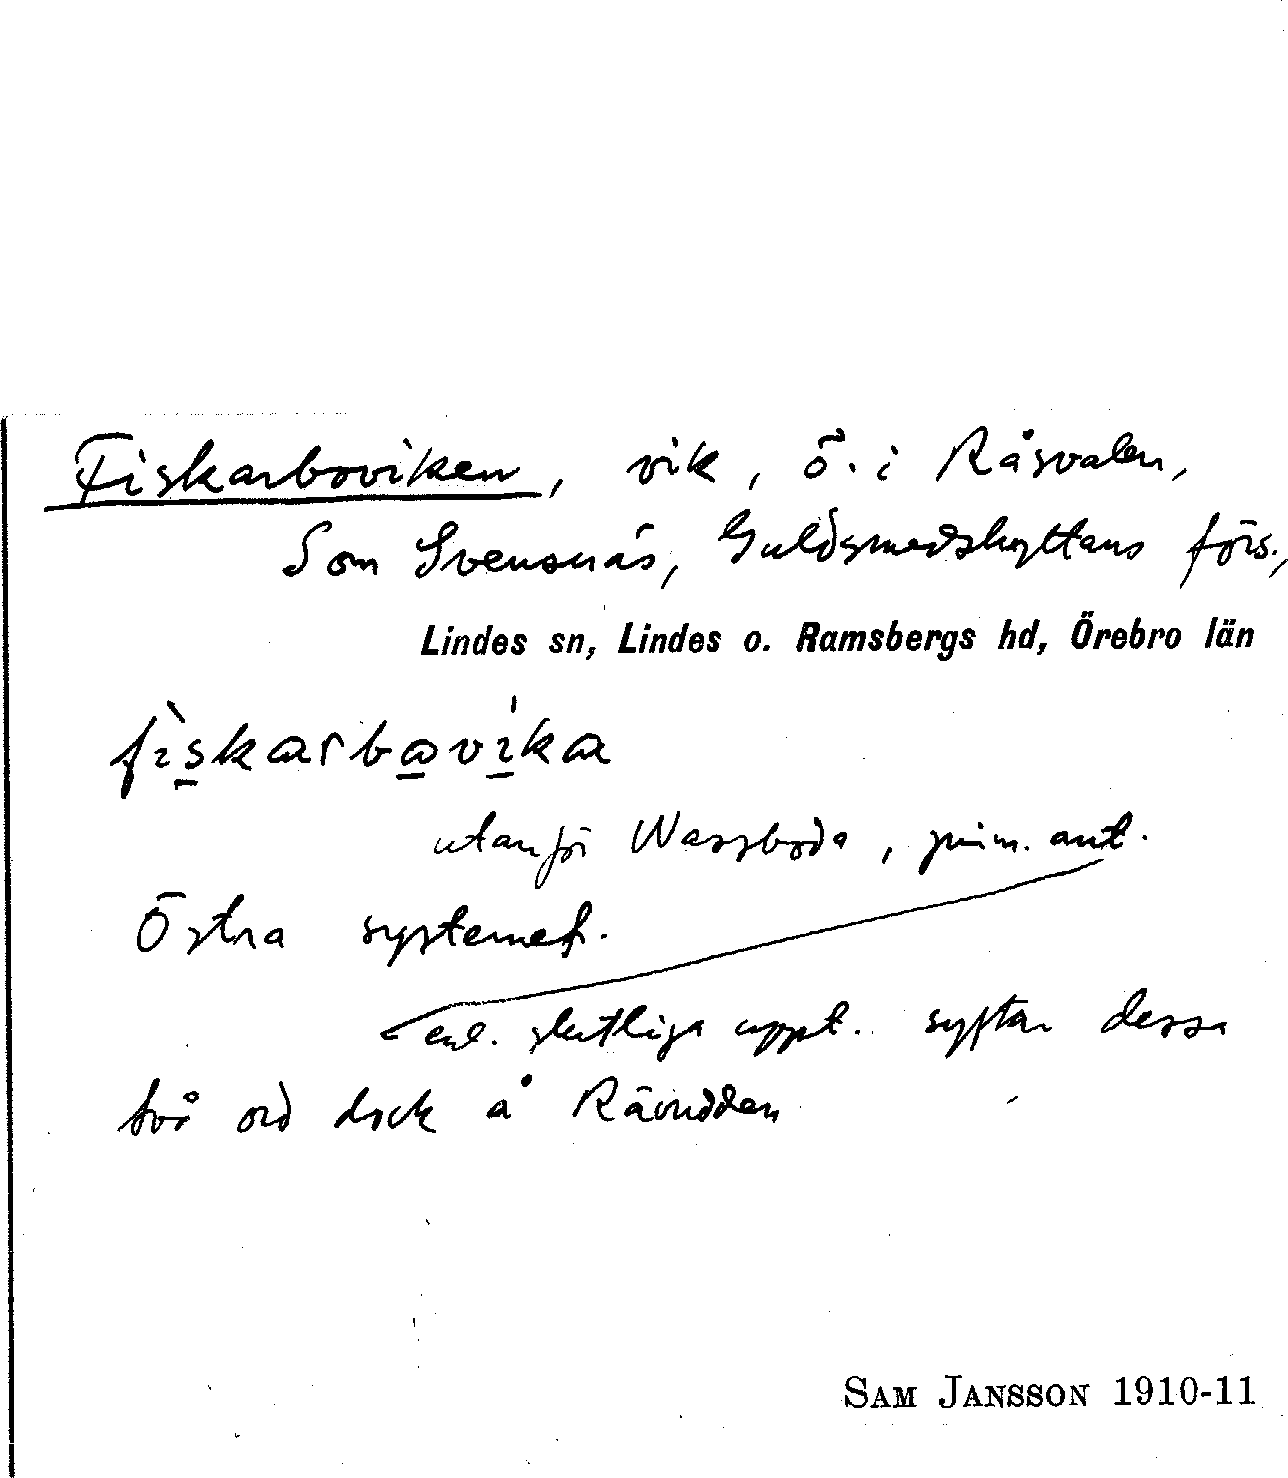 Fiskarboviken, vik, ö. i Råsvalen,
Som Svensnäs, Guldsmedshyttans förs.,
Lindes sn, Lindes o. Ramsbergs hd, Örebro län
fiskarbavika
utanför Wassboda, prim. ant.
Östra systemet.
enl. slutliga uppt. syftar dessa
två ord dock å Rävudden
SAM JANSSON 1910-11